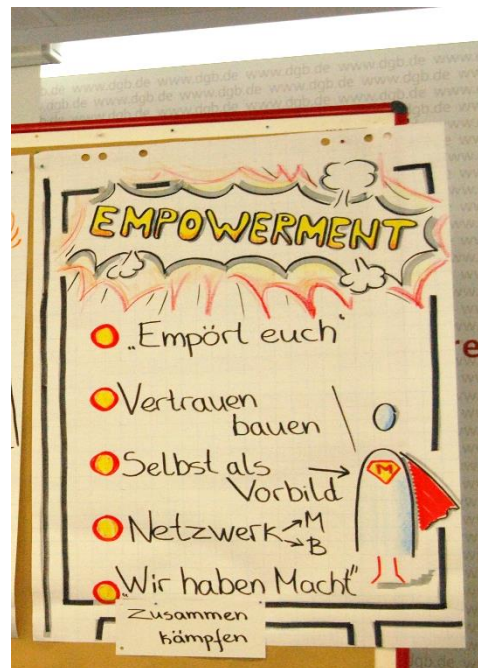 www.dgb.de www.dgb.de www.dgb.de
EMPOWERMENT
„Empört euch“
Vertrauen
bauen
Selbst als
Vorbild
M
Netzwerk
M
B
„Wir haben Macht“
Zusammen
kämpfen